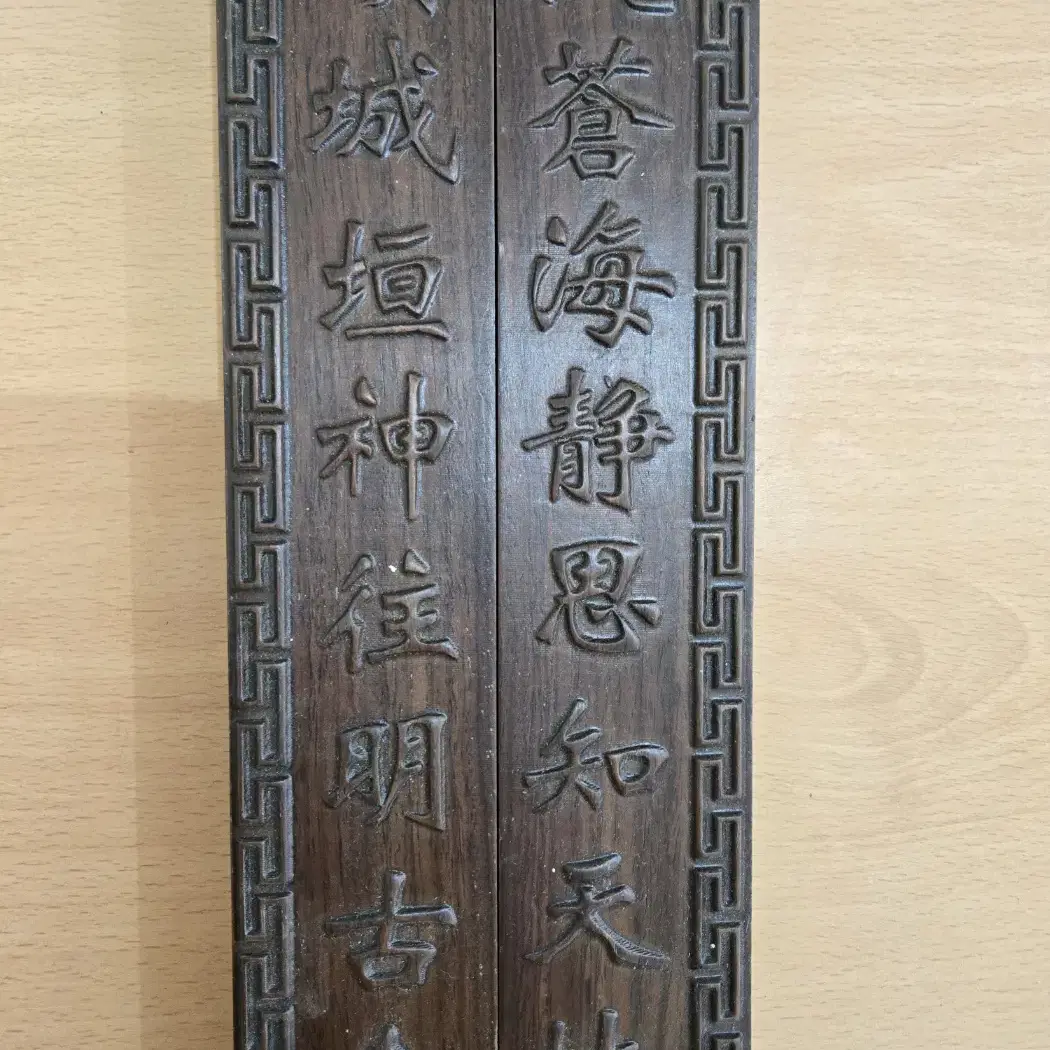 蒼海靜思知天
城垣神往明古